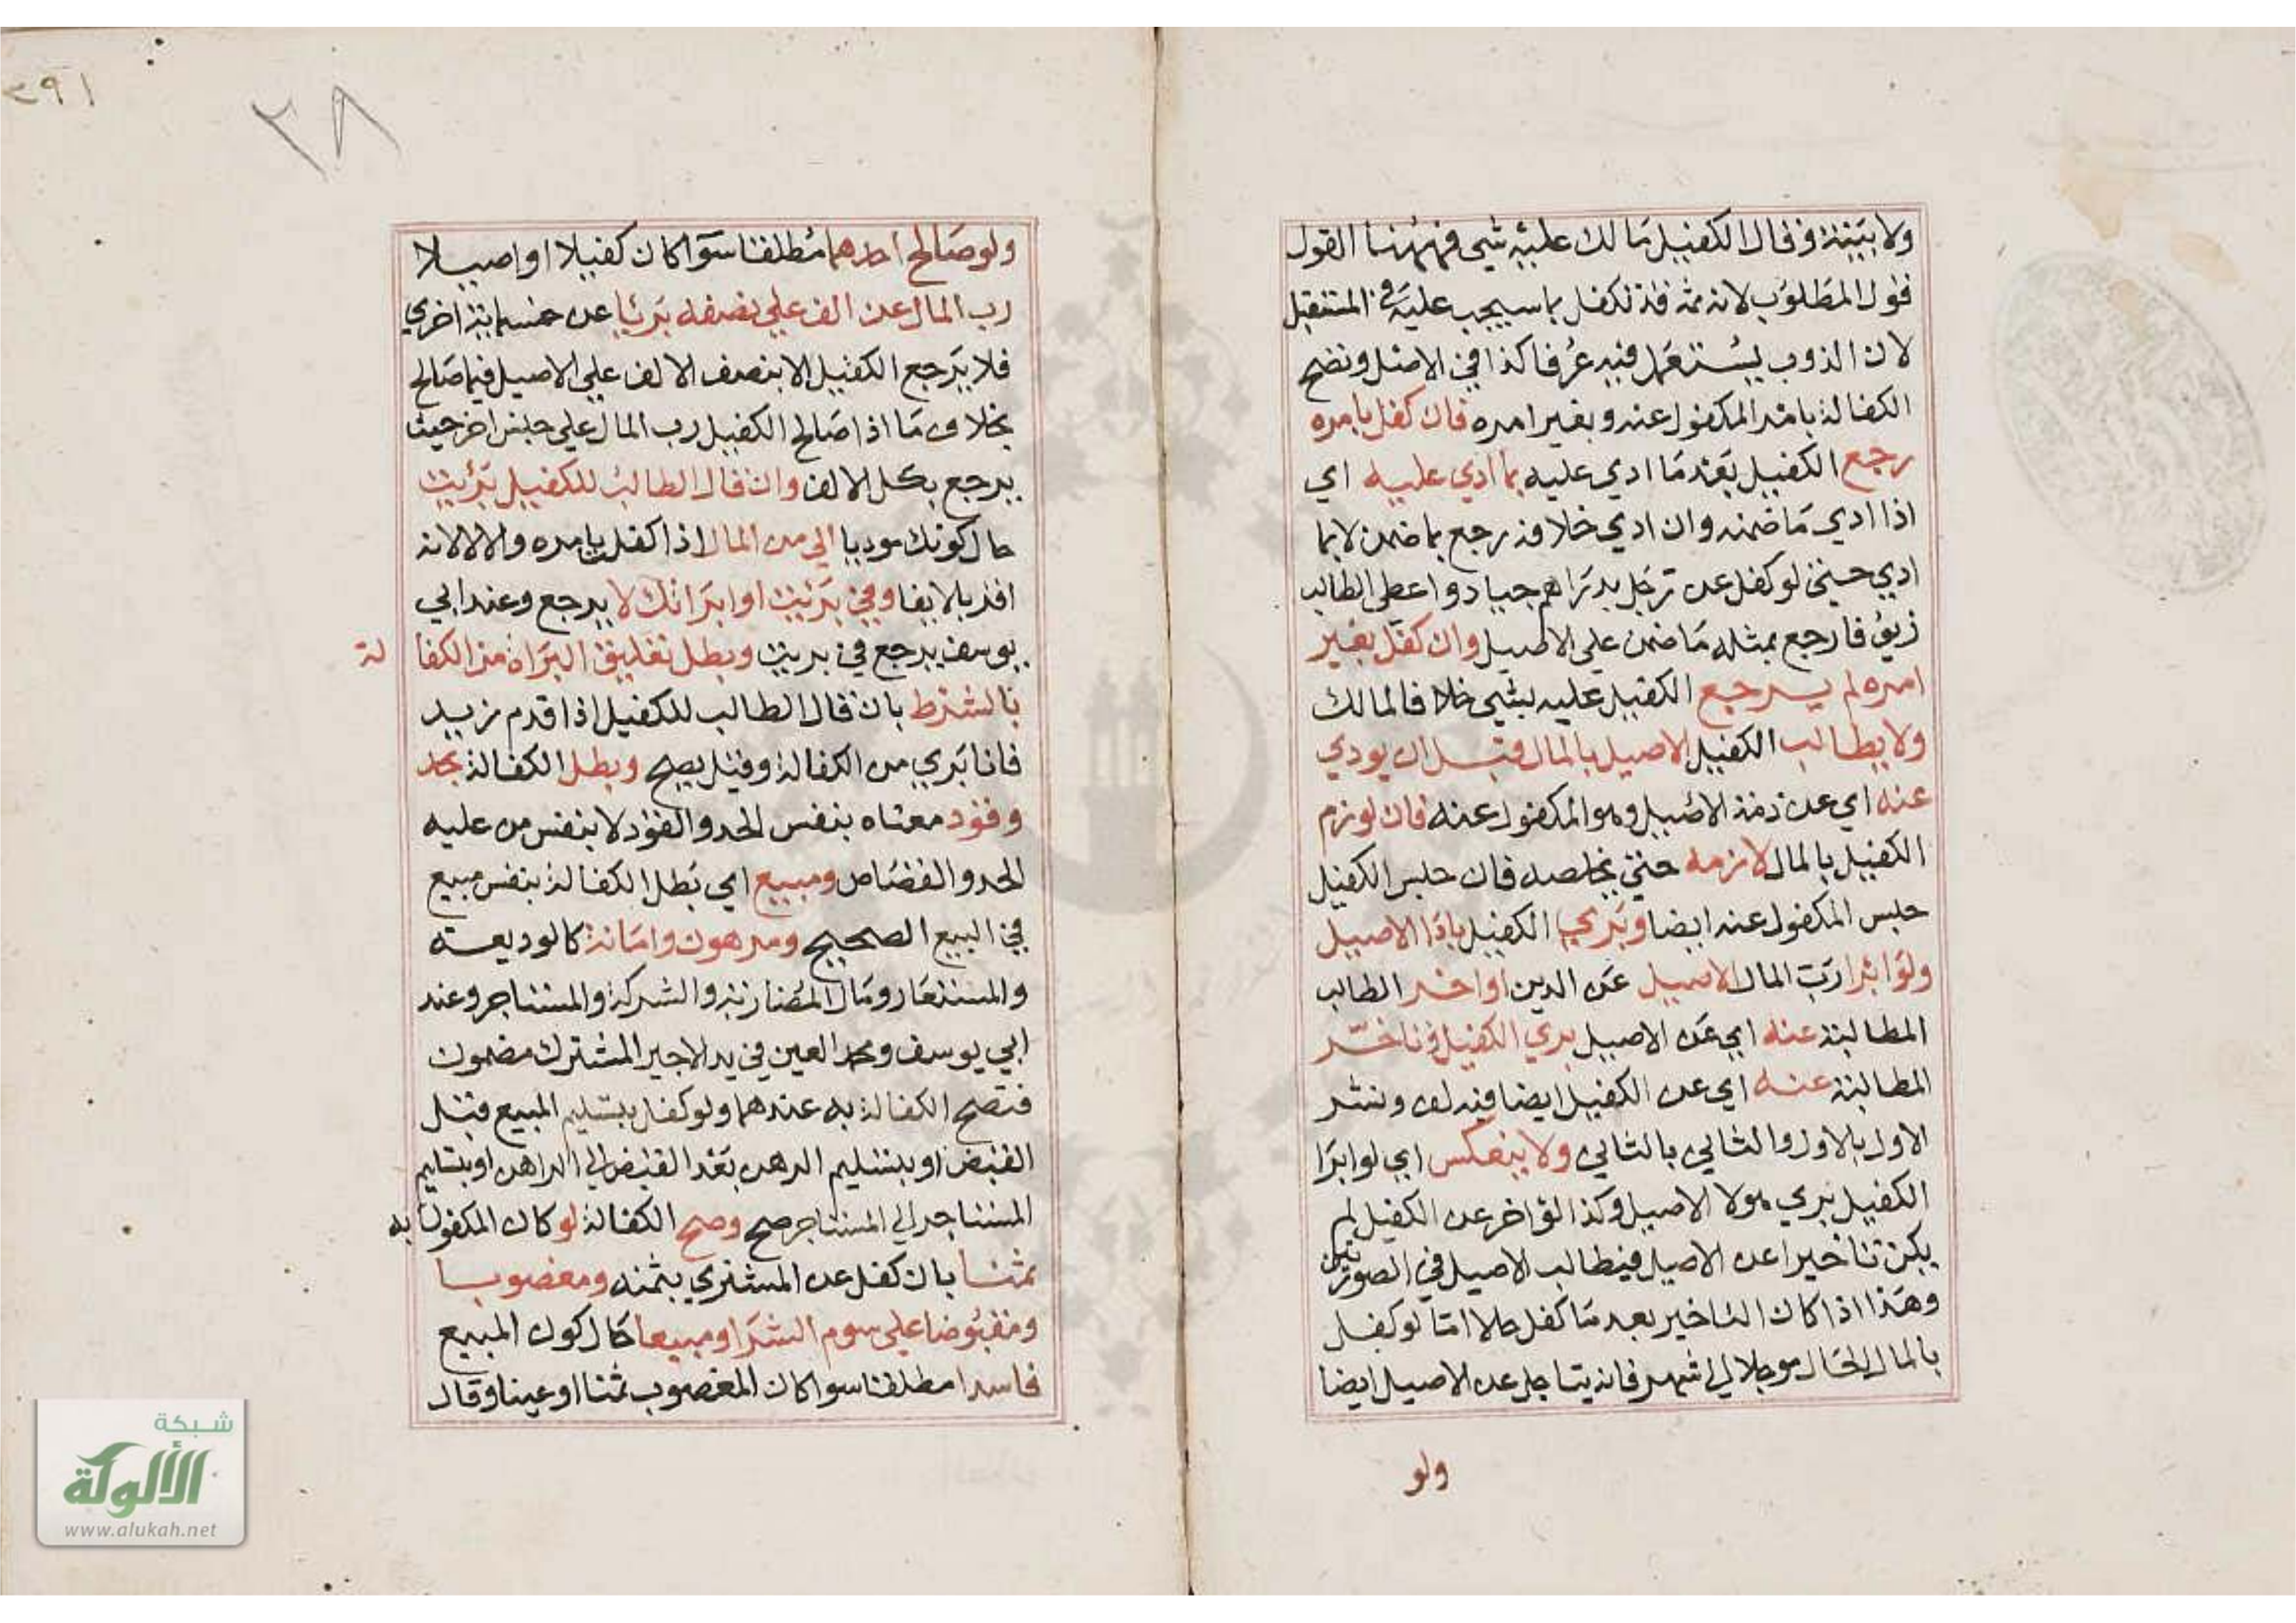 ولا بينة وقال الكفيل مالك عليه شي فههنا القول
قول المطلوب لانه ثمه قد تكفل بما سيجب عليه في المستقبل
لان الذوب يستعمل فيه عرفا كذا في الاصل وتصح
الكفالة بامر المكفول عنه وبغير امره فان كفل بامره
رجع الكفيل بعد ما ادي عليه بما ادي عليه اي
اذا ادي ما ضمنه وان ادي خلافه رجع بما ضمن لا بما
ادي حتي لو كفل عن رجل بدراهم جياد واعطي الطالب
زيوفا رجع بمثله ما ضمن علي الاصيل وان كفل بغير
امره لم يرجع الكفيل عليه بشي خلافا لمالك
ولا يطالب الكفيل الاصيل بالمال قبل ان يودي
عنه اي عن ذمة الاصيل وهو المكفول عنه فان لوزم
الكفيل بالمال لازمه حتي يخلصه فان حبس الكفيل
حبس المكفول عنه ايضا وبري الكفيل باذا الاصيل
ولو ابرا رب المال الاصيل عن الدين او اخر الطالب
المطالبة عنه اي عن الاصيل بري الكفيل وتاخر
المطالبة عنه اي عن الكفيل ايضا فيه لف ونشر
الاول بالاول والثاني بالثاني ولا ينعكس اي لو ابرا
الكفيل بري هو لا الاصيل وكذا لو اخر عن الكفيل لم
يكن تاخيرا عن الاصيل فيطالب الاصيل في الصورتين
وهذا اذا كان التاخير بعد ما كفل حالا اما لو كفل
بالمال الحال موجلا الي شهر فانه يتاجل عن الاصيل ايضا
ولو
١٩٣
٢٨
ولو صالح احدهما مطلقا سوا كان كفيلا او اصيلا
رب المال عن الف علي نصفه برئا عن خمسماية اخري
فلا يرجع الكفيل الا بنصف الالف علي الاصيل فيما صالح
بخلاف ما اذا صالح الكفيل رب المال علي جنس اخر حيث
يرجع بكل الالف وان قال الطالب للكفيل برئت
حال كونك موديا الي من المال اذا كفل بامره والا لا لانه
اقر بالايفا وفي برئت او ابراتك لا يرجع وعند ابي
يوسف يرجع في بريت وبطل تعليق البراة من الكفالة
بالشرط بان قال الطالب للكفيل اذا قدم زيد
فانا بري من الكفالة وقيل يصح وبطل الكفالة بحد
وقود معناه بنفس الحد والقود لا بنفس من عليه
الحد والقصاص ومبيع اي بطل الكفالة بنفس مبيع
في البيع الصحيح ومرهون وامانة كالوديعة
والمستعار ومال المضاربة والشركة والمستاجر وعند
ابي يوسف ومحمد العين في يد الاجير المشترك مضمون
فتصح الكفالة به عندهما ولو كفل بتسليم المبيع قبل
القبض او بتسليم الرهن بعد القبض الي الراهن او بتسليم
المستاجر الي المستاجر صح وصح الكفالة لو كان المكفول به
ثمنا بان كفل عن المشتري بثمنه ومغصوبا
ومقبوضا علي سوم الشرا ومبيعا حال كون المبيع
فاسدا مطلقا سوا كان المغصوب ثمنا او عينا وقال
شبكة
الألوكة
www.alukah.net